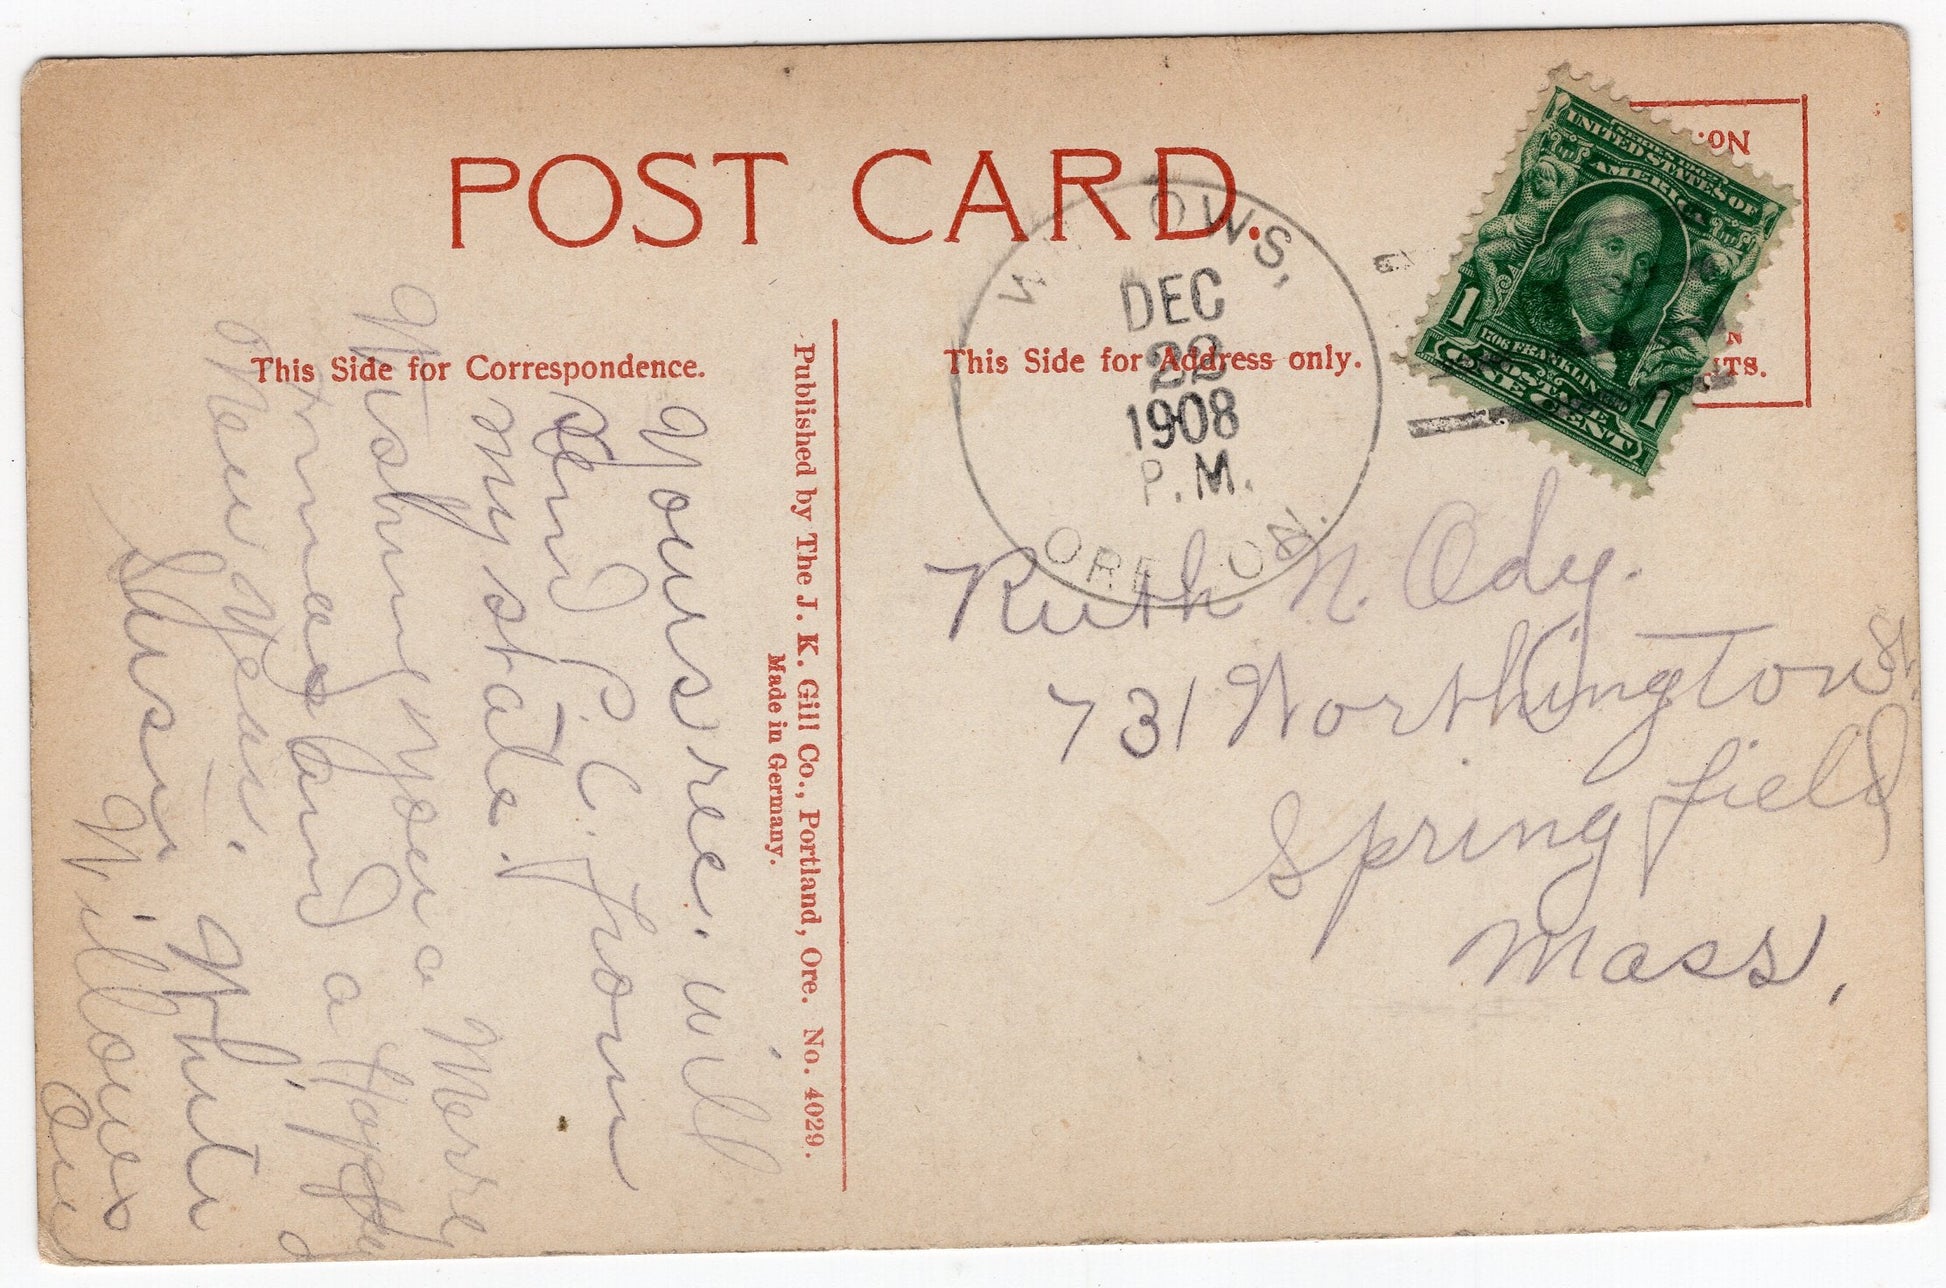 POST CARD.
ON
N
TS.
OWS,
DEC
22
1908
P.M.
OREGON.
SERIES 1902
UNITED STATES OF
AMERICA
1706 FRANKLIN 1790
POSTAGE
1 ONE CENT 1
This Side for Correspondence.
This Side for Address only.
Published by The J. K. Gill Co., Portland, Ore. No. 4029.
Made in Germany.
Yours rec. will
send P.C. from
my state.
Wishing you a Merry
Xmas and a Happy
New Year.
Susin White
Willows
Ore
Ruth N. Ody.
731 Worthington St
Springfield
Mass,